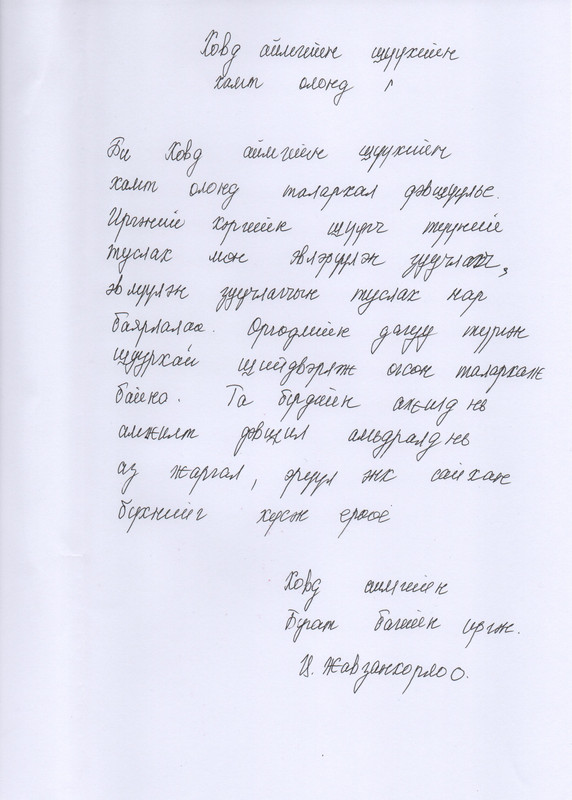 Ховд аймгийн шүүхийн
хамт олонд !
Би Ховд аймгийн шүүхийн
хамт олонд талархал дэвшүүлье.
Иргэний хэргийн шүүгч түүний
туслах мөн эвлэрүүлэн зуучлагч,
эвлүүлэн зуучлагчын туслах нар
баярлалаа. Өргөдлийн дагуу түргэн
шуурхай шийдвэрлэж өгсөн талархаж
байна. Та бүгдийн ажилд нь
амжилт дэвшил амьдралд нь
аз жаргал, эрүүл энх сайхан
бүхнийг хүсэн ерөөе
Ховд аймгийн
Бугат багийн иргэн.
Ц. Жавзанхорлоо.